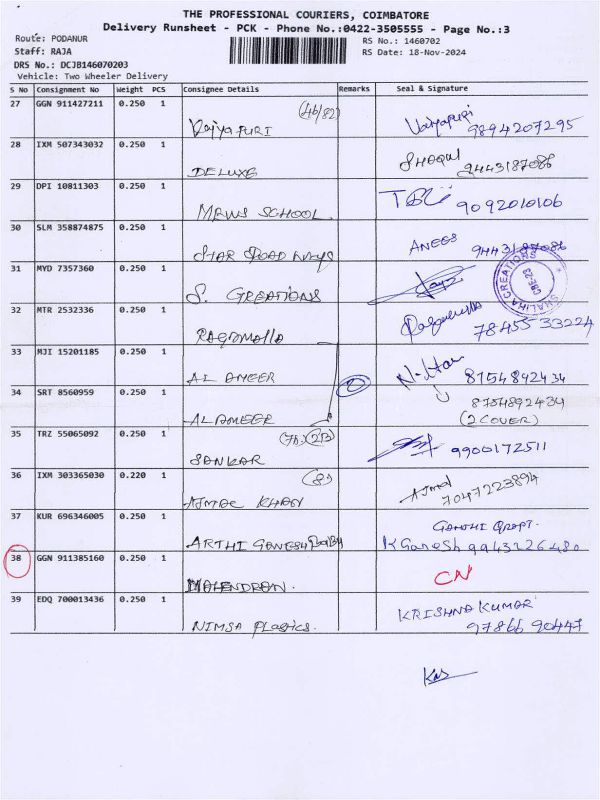 THE PROFESSIONAL COURIERS, COIMBATORE
Delivery Runsheet - PCK - Phone No.:0422-3505555 - Page No.:3
Route: PODANUR
RS No.: 1460702
Staff: RAJA
RS Date: 18-Nov-2024
DRS No.: DCJB146070203
Vehicle: Two Wheeler Delivery
S No Consignment No Weight PCS Consignee Details Remarks Seal & Signature
27 GGN 911427211 0.250 1 (46/82)
9894207295
28 IXM 507343032 0.250 1
DELUXE 9443187086
29 DPI 10811303 0.250 1
SCHOOL 9092010106
30 SLM 358874875 0.250 1 ANEES
STAR ROAD WAYS 9443187086
31 MYD 7357360 0.250 1 SHALIHA CREATIONS
S. CREATIONS
32 MTR 2532336 0.250 1
7845533224
33 MJI 15201185 0.250 1
AL AMEER 2 8754892434
34 SRT 8560959 0.250 1 8754892434
AL AMEER (2 COVER)
35 TRZ 55065092 0.250 1
SANKAR 9900172511
36 IXM 303365030 0.220 1 Ajmal
AJMAL KHAN 7047223894
37 KUR 696346005 0.250 1 GANDHI
ARTHI GANESH K Ganesh 9943226480
38 GGN 911385160 0.250 1 CN
MAHENDRAN.
39 EDQ 700013436 0.250 1 KRISHNA KUMAR
NIMSA Plastics. 97866 90447